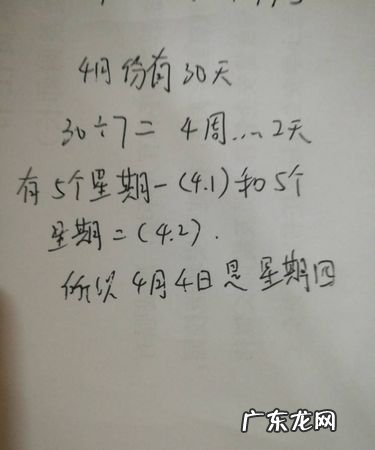 4月份有30天
30÷7=4周...2天
有5个星期一(4.1)和5个
星期二(4.2).
所以4月4日是星期四
广东龙网